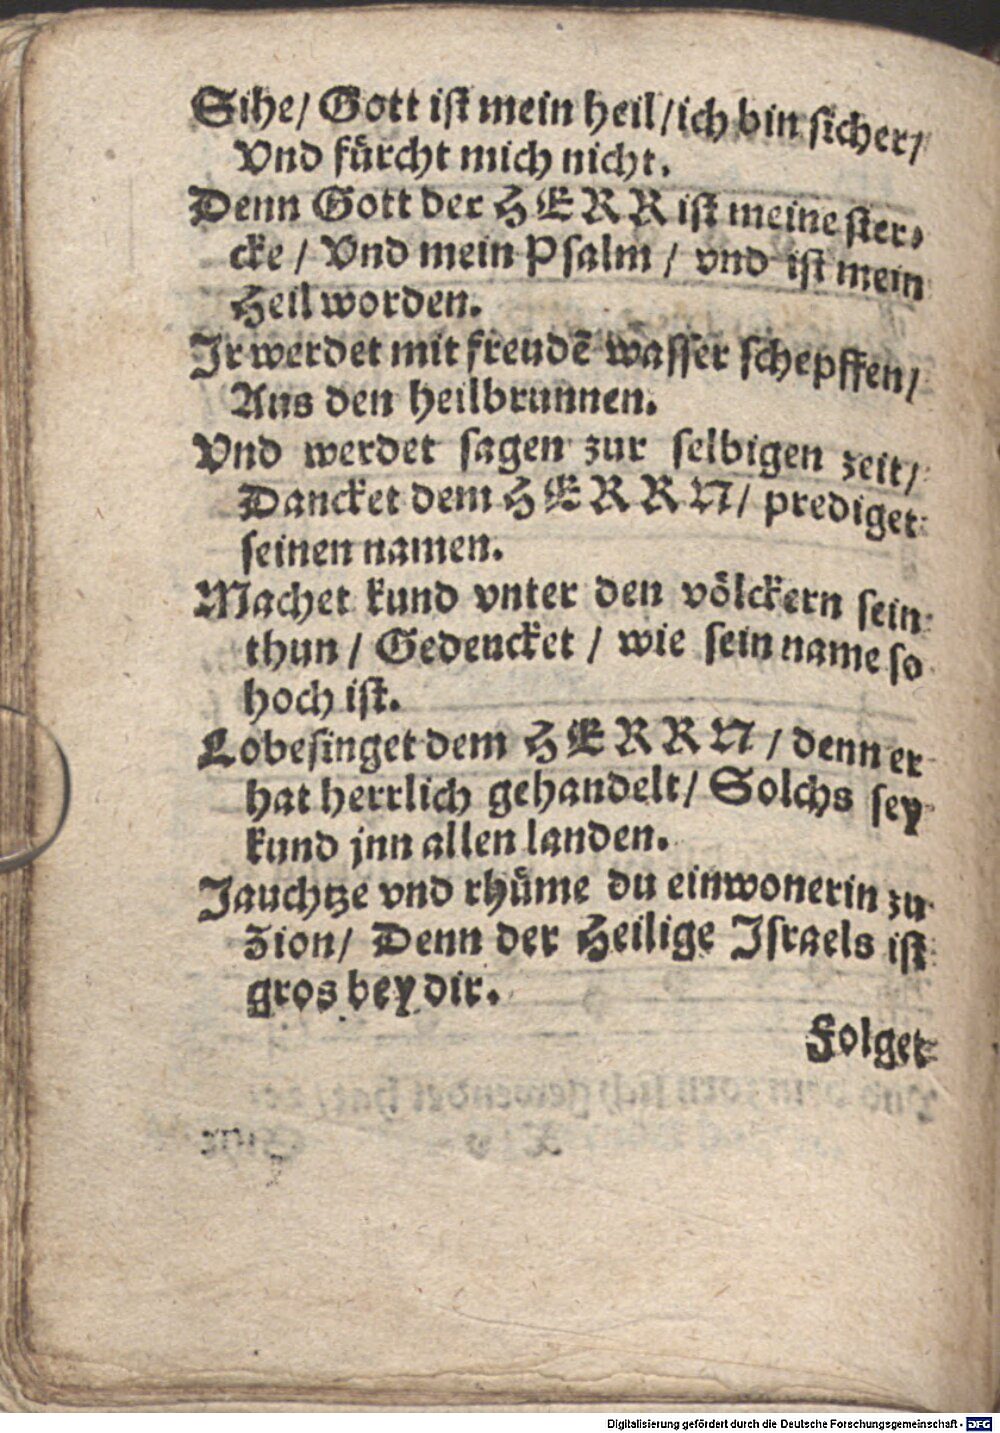 Sihe/ Gott ist mein heil/ich bin sicher/
Vnd fürcht mich nicht.
Denn Gott der HERR ist meine ster-
cke / Vnd mein Psalm / vnd ist mein
Heil worden.
Ir werdet mit freudē wasser schepffen/
Aus den heilbrunnen.
Vnd werdet sagen zur selbigen zeit/
Dancket dem HERRN/ prediget
seinen namen.
Machet kund vnter den völckern sein
thun / Gedencket / wie sein name so
hoch ist.
Lobesinget dem HERRN / denn er
hat herrlich gehandelt/ Solchs sey
kund jnn allen landen.
Jauchtze vnd rhüme du einwonerin zu
Zion/ Denn der Heilige Israels ist
gros bey dir.
Folget
Digitalisierung gefördert durch die Deutsche Forschungsgemeinschaft - DFG